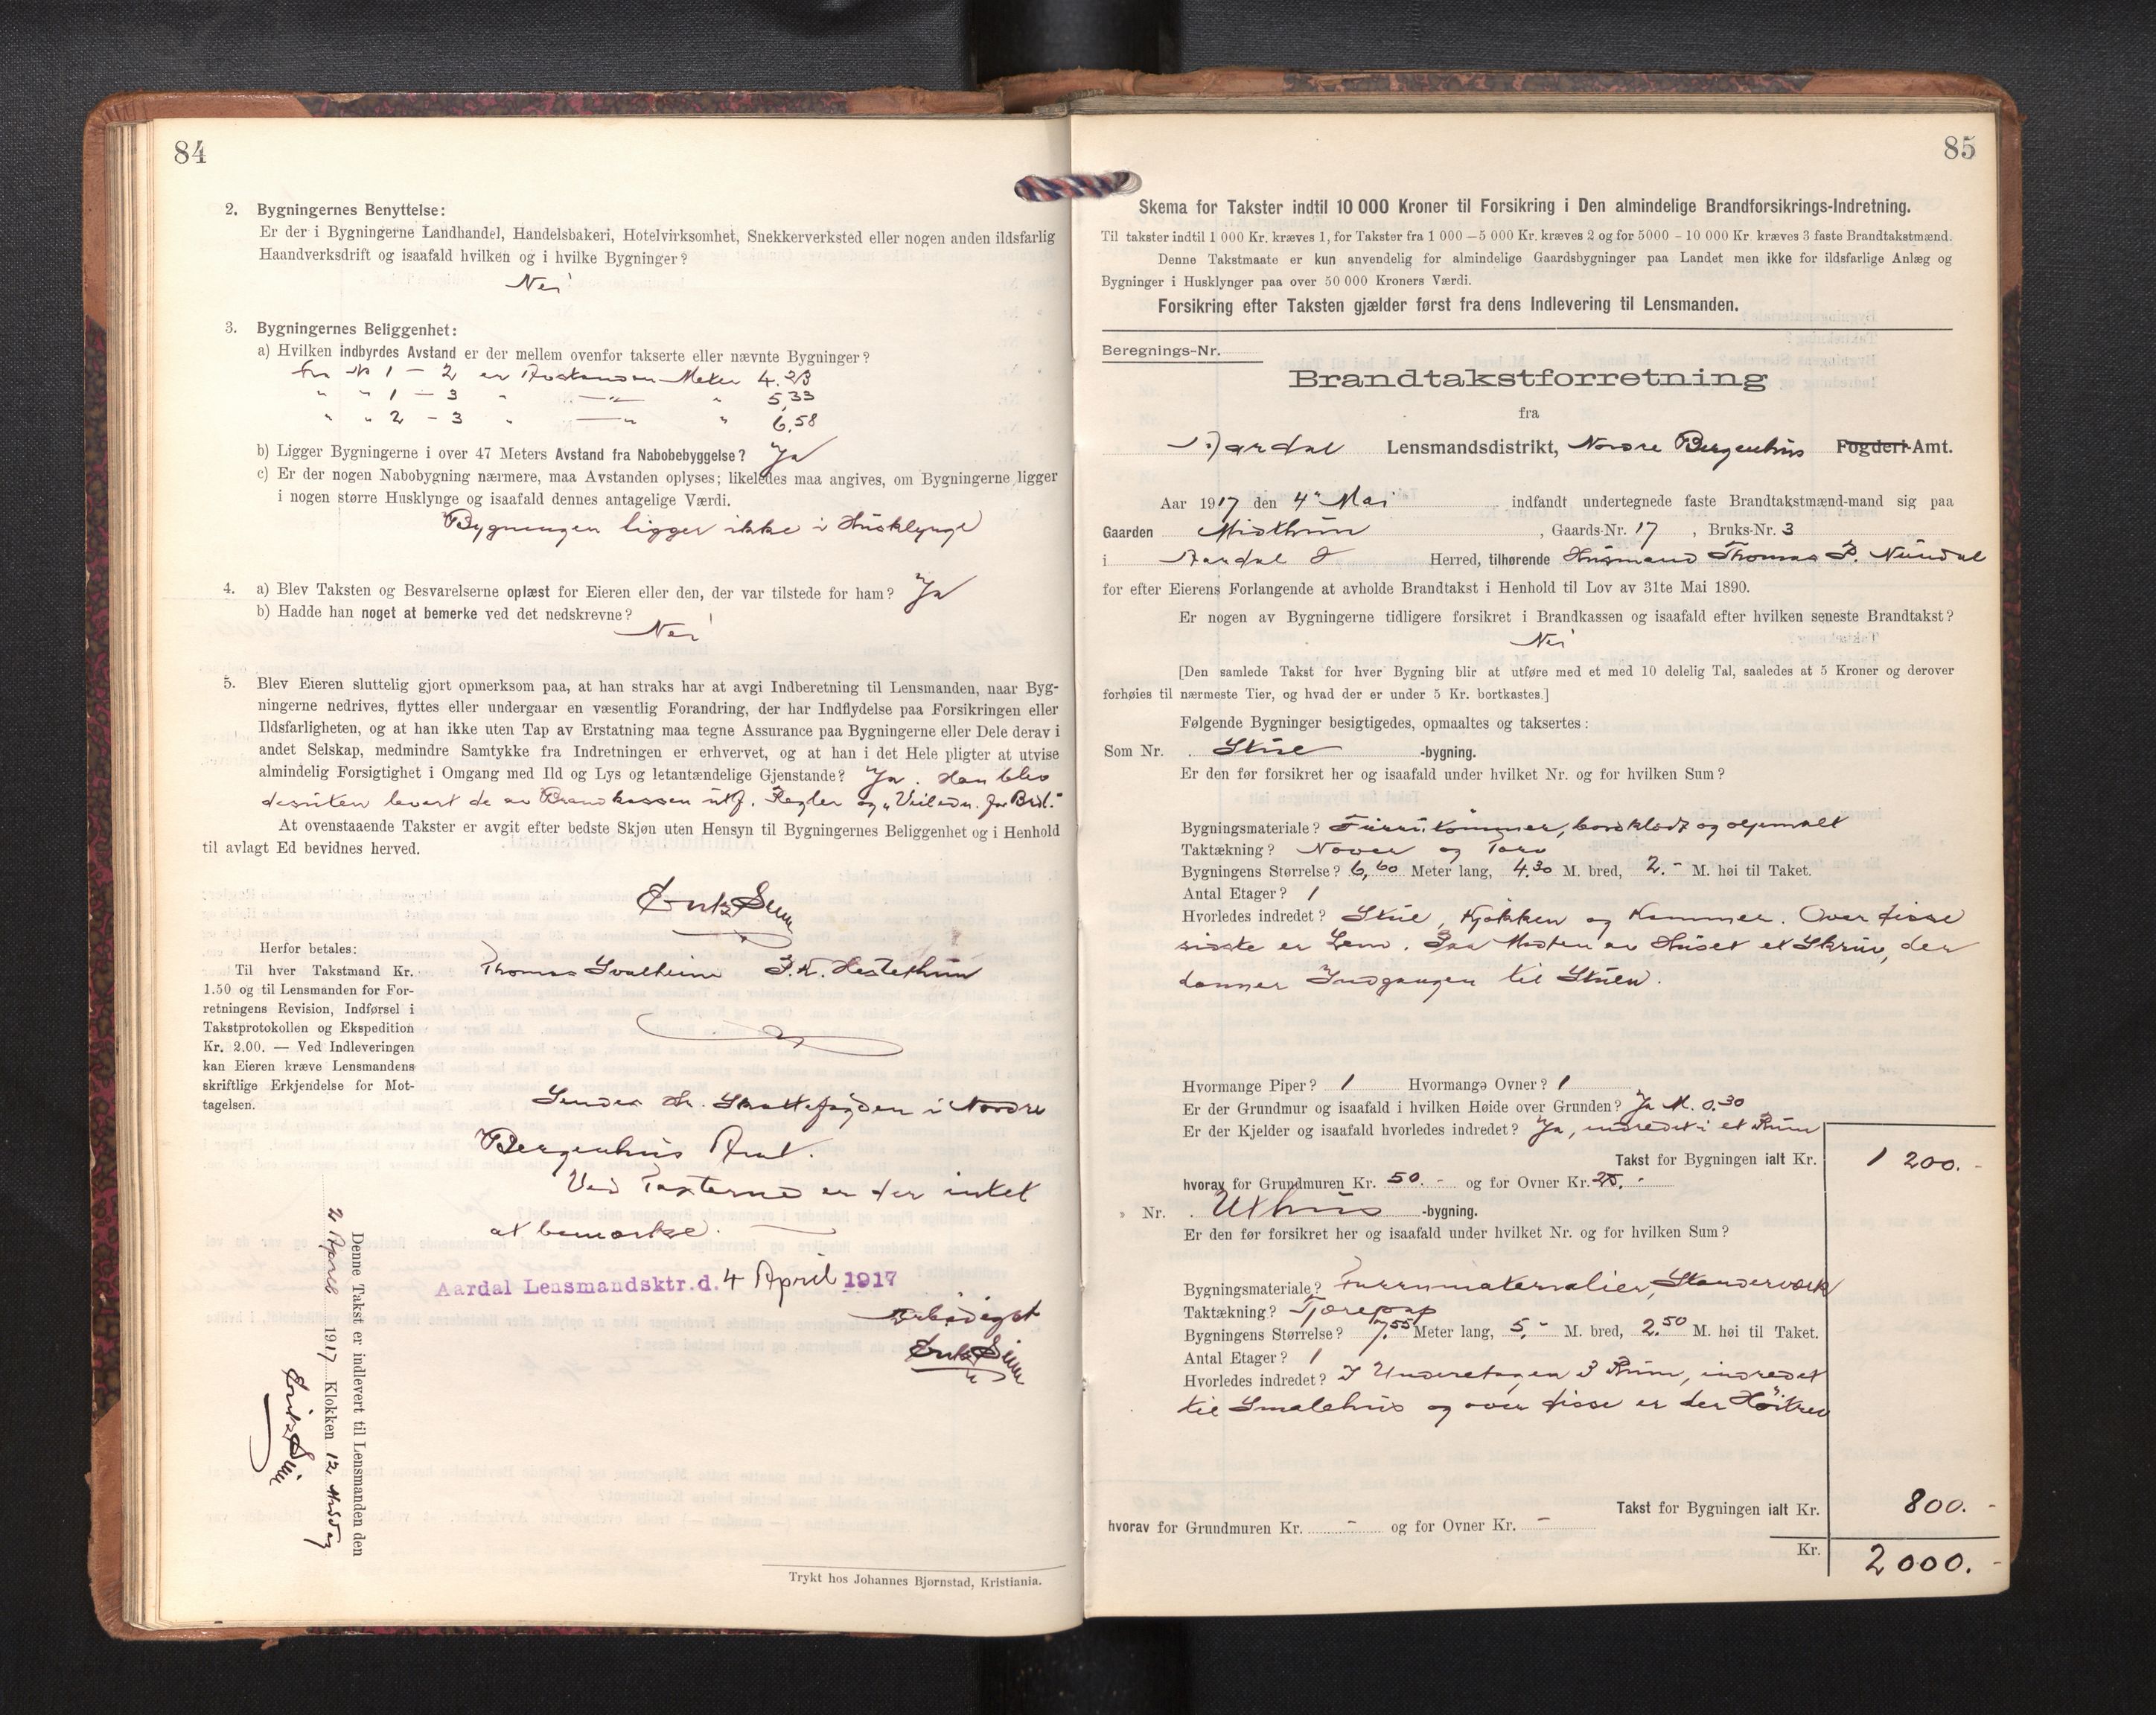 84
2. Bygningernes Benyttelse:
Er der i Bygningerne Landhandel, Handelsbakeri, Hotelvirksomhet, Snekkerverksted eller nogen anden ildsfarlig
Haandverksdrift og isaafald hvilken og i hvilke Bygninger?
Nei
3. Bygningernes Beliggenhet:
a) Hvilken indbyrdes Avstand er der mellem ovenfor takserte eller nævnte Bygninger?
fra No 1 — 2 er Avstanden Meter 4.23
" " 1 — 3 " —"— " 5,33
" " 2 — 3 " —"— " 6,58
b) Ligger Bygningerne i over 47 Meters Avstand fra Nabobebyggelse? Ja
c) Er der nogen Nabobygning nærmere, maa Avstanden oplyses; likeledes maa angives, om Bygningerne ligger
i nogen større Husklynge og isaafald dennes antagelige Værdi.
Bygningen ligger ikke i Husklynge
4. a) Blev Taksten og Besvarelserne oplæst for Eieren eller den, der var tilstede for ham? Ja
b) Hadde han noget at bemerke ved det nedskrevne?
Nei
5. Blev Eieren sluttelig gjort opmerksom paa, at han straks har at avgi Indberetning til Lensmanden, naar Byg-
ningerne nedrives, flyttes eller undergaar en væsentlig Forandring, der har Indflydelse paa Forsikringen eller
Ildsfarligheten, og at han ikke uten Tap av Erstatning maa tegne Assurance paa Bygningerne eller Dele derav i
andet Selskap, medmindre Samtykke fra Indretningen er erhvervet, og at han i det Hele pligter at utvise
almindelig Forsigtighet i Omgang med Ild og Lys og letantændelige Gjenstande? Ja. Han blev
desuten levert de av Brandkassen utf. Regler og „Veiledn. for Brd."
At ovenstaaende Takster er avgit efter bedste Skjøn uten Hensyn til Bygningernes Beliggenhet og i Henhold
til avlagt Ed bevidnes herved.
Thomas Svalheim
Herfor betales:
Til hver Takstmand Kr.
1.50 og til Lensmanden for For-
retningens Revision, Indførsel i
Takstprotokollen og Ekspedition
Kr. 2.00. — Ved Indleveringen
kan Eieren kræve Lensmandens
skriftlige Erkjendelse for Mot-
tagelsen.
Sendes Hr. Skattefogden i Nordre
Bergenhus Amt.
Ved Taxterne er der intet
at bemærke.
Aardal Lensmandsktr. d. 4 April 1917
Ærbødigst
Denne Takst er indlevert til Lensmanden den
2 April 1917 Klokken 12 Middag
Trykt hos Johannes Bjørnstad, Kristiania.
85
Skema for Takster indtil 10 000 Kroner til Forsikring i Den almindelige Brandforsikrings-Indretning.
Til takster indtil 1 000 Kr. kræves 1, for Takster fra 1 000 — 5 000 Kr. kræves 2 og for 5000 - 10 000 Kr. kræves 3 faste Brandtakstmænd.
Denne Takstmaate er kun anvendelig for almindelige Gaardsbygninger paa Landet men ikke for ildsfarlige Anlæg og
Bygninger i Husklynger paa over 50 000 Kroners Værdi.
Forsikring efter Taksten gjælder først fra dens Indlevering til Lensmanden.
Beregnings-Nr.
Brandtakstforretning
fra
Aardal Lensmandsdistrikt, Nordre Bergenhus Fogderi-Amt.
Aar 1917 den 4' Mai indfandt undertegnede faste Brandtakstmænd-mand sig paa
Gaarden Midthun, Gaards-Nr. 17, Bruks-Nr. 3
i Aardal Herred, tilhørende Husmand Thomas P. Nundal
for efter Eierens Forlangende at avholde Brandtakst i Henhold til Lov av 31te Mai 1890.
Er nogen av Bygningerne tidligere forsikret i Brandkassen og isaafald efter hvilken seneste Brandtakst?
Nei
[Den samlede Takst for hver Bygning blir at utføre med et med 10 delelig Tal, saaledes at 5 Kroner og derover
forhøies til nærmeste Tier, og hvad der er under 5 Kr. bortkastes.]
Følgende Bygninger besigtigedes, opmaaltes og taksertes:
Som Nr. Stue -bygning.
Er den før forsikret her og isaafald under hvilket Nr. og for hvilken Sum?
Bygningsmateriale? Furutømmer, bordklædt og oljemalt
Taktækning? Næver og Torv
Bygningens Størrelse? 6,60 Meter lang, 4.30 M. bred, 2.- M. høi til Taket.
Antal Etager? 1
Hvorledes indredet? Stue, Kjøkken og Kammer. Over disse
sidste er Lem. Paa Midten av Huset et Skruv, der
danner Indgangen til Stuen.
Hvormange Piper? 1 Hvormange Ovner? 1
Er der Grundmur og isaafald i hvilken Høide over Grunden? Ja M. 0.30
Er der Kjelder og isaafald hvorledes indredet? Ja, indredet i et Rum
Takst for Bygningen ialt Kr. 1 200.-
hvorav for Grundmuren Kr. 50.- og for Ovner Kr. 25.-
" Nr. Uthus -bygning.
Er den før forsikret her og isaafald under hvilket Nr. og for hvilken Sum?
Bygningsmateriale? Furumaterialier, Standerværk
Taktækning? Tjærepap
Bygningens Størrelse? 7,55 Meter lang, 5,- M. bred, 2.50 M. høi til Taket.
Antal Etager? 1
Hvorledes indredet? I Underetagen 3 Rum, indredet
til Smalehus og over disse er der Høitrev
Takst for Bygningen ialt Kr. 800.-
hvorav for Grundmuren Kr. - og for Ovner Kr. -
Kr. 2000.-